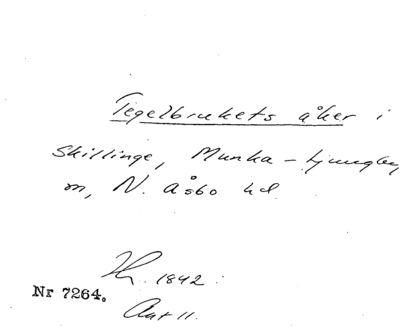 Tegelbrukets åker i
Skillinge, Munka-Ljungby
sn, N. Åsbo hd.
1842.
Nr 7264.
Akt 11.